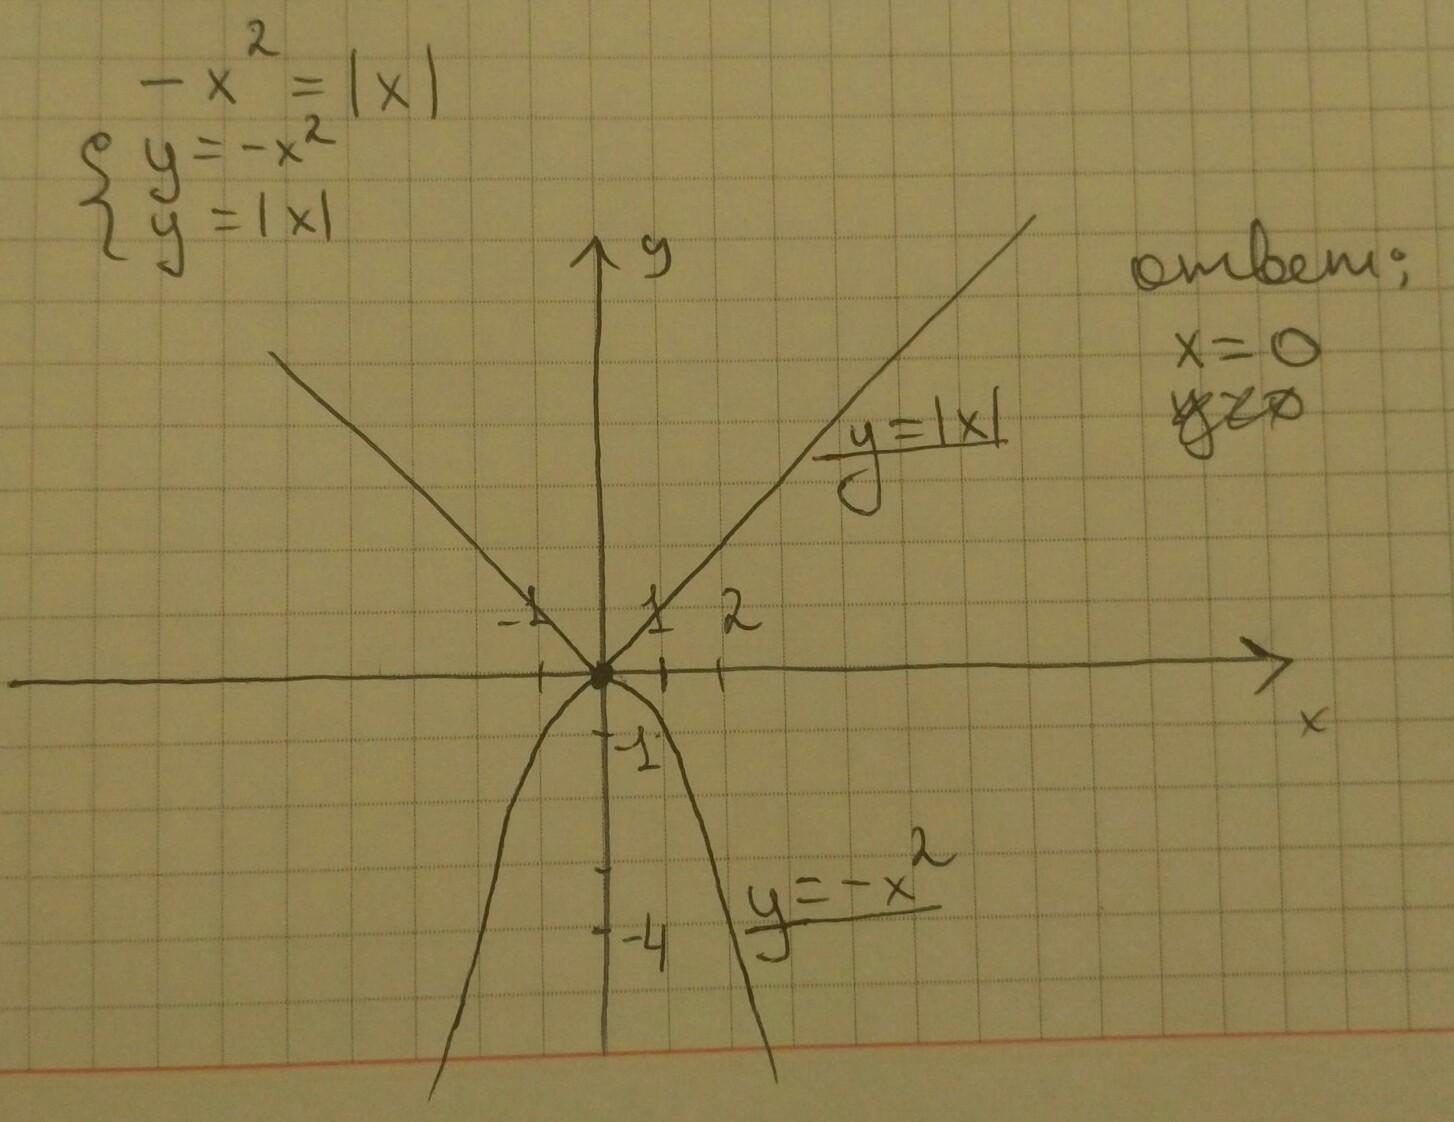 -x² = |x|
{ y = -x²
y = |x|
y
ответ:
x = 0
y = |x|
-1
1
2
x
-1
y = -x²
-4